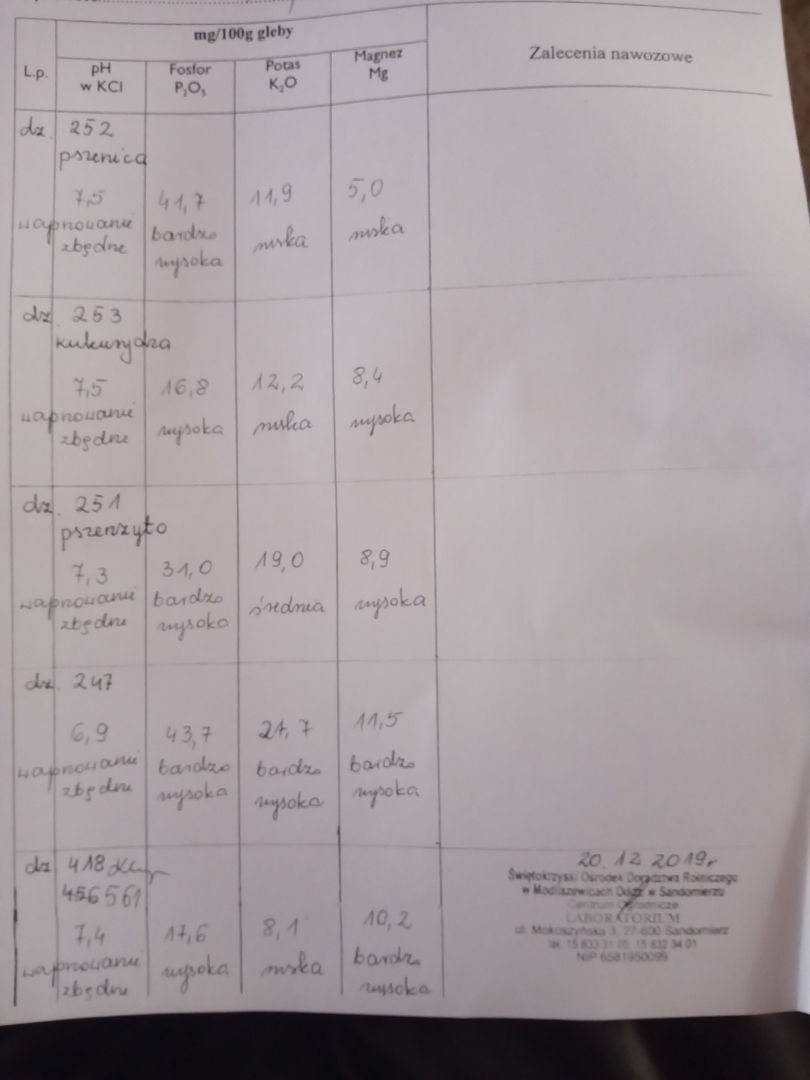 mg/100g gleby
L.p.
pH
w KCl
Fosfor
P₂O₅
Potas
K₂O
Magnez
Mg
Zalecenia nawozowe
dz. 252
pszenica
7,5 41,7 11,9 5,0
wapnowanie zbędne
bardzo wysoka
niska
niska
dz. 253
kukurydza
7,5 16,8 12,2 8,4
wapnowanie zbędne
wysoka
niska
wysoka
dz. 251
pszenżyto
7,3 31,0 19,0 8,9
wapnowanie zbędne
bardzo wysoka
średnia
wysoka
dz. 247
6,9 43,7 21,7 11,5
wapnowanie zbędne
bardzo wysoka
bardzo wysoka
bardzo wysoka
dz 418
456561
7,4 17,6 8,1 10,2
wapnowanie zbędne
wysoka
niska
bardzo wysoka
20.12.2019r
Świętokrzyski Ośrodek Doradztwa Rolniczego
w Modliszewicach Oddz. w Sandomierzu
Centrum Ogrodnicze
LABORATORIUM
ul. Mokoszyńska 3, 27-600 Sandomierz
tel. 15 833 31 05, 15 832 34 01
NIP 6581950099